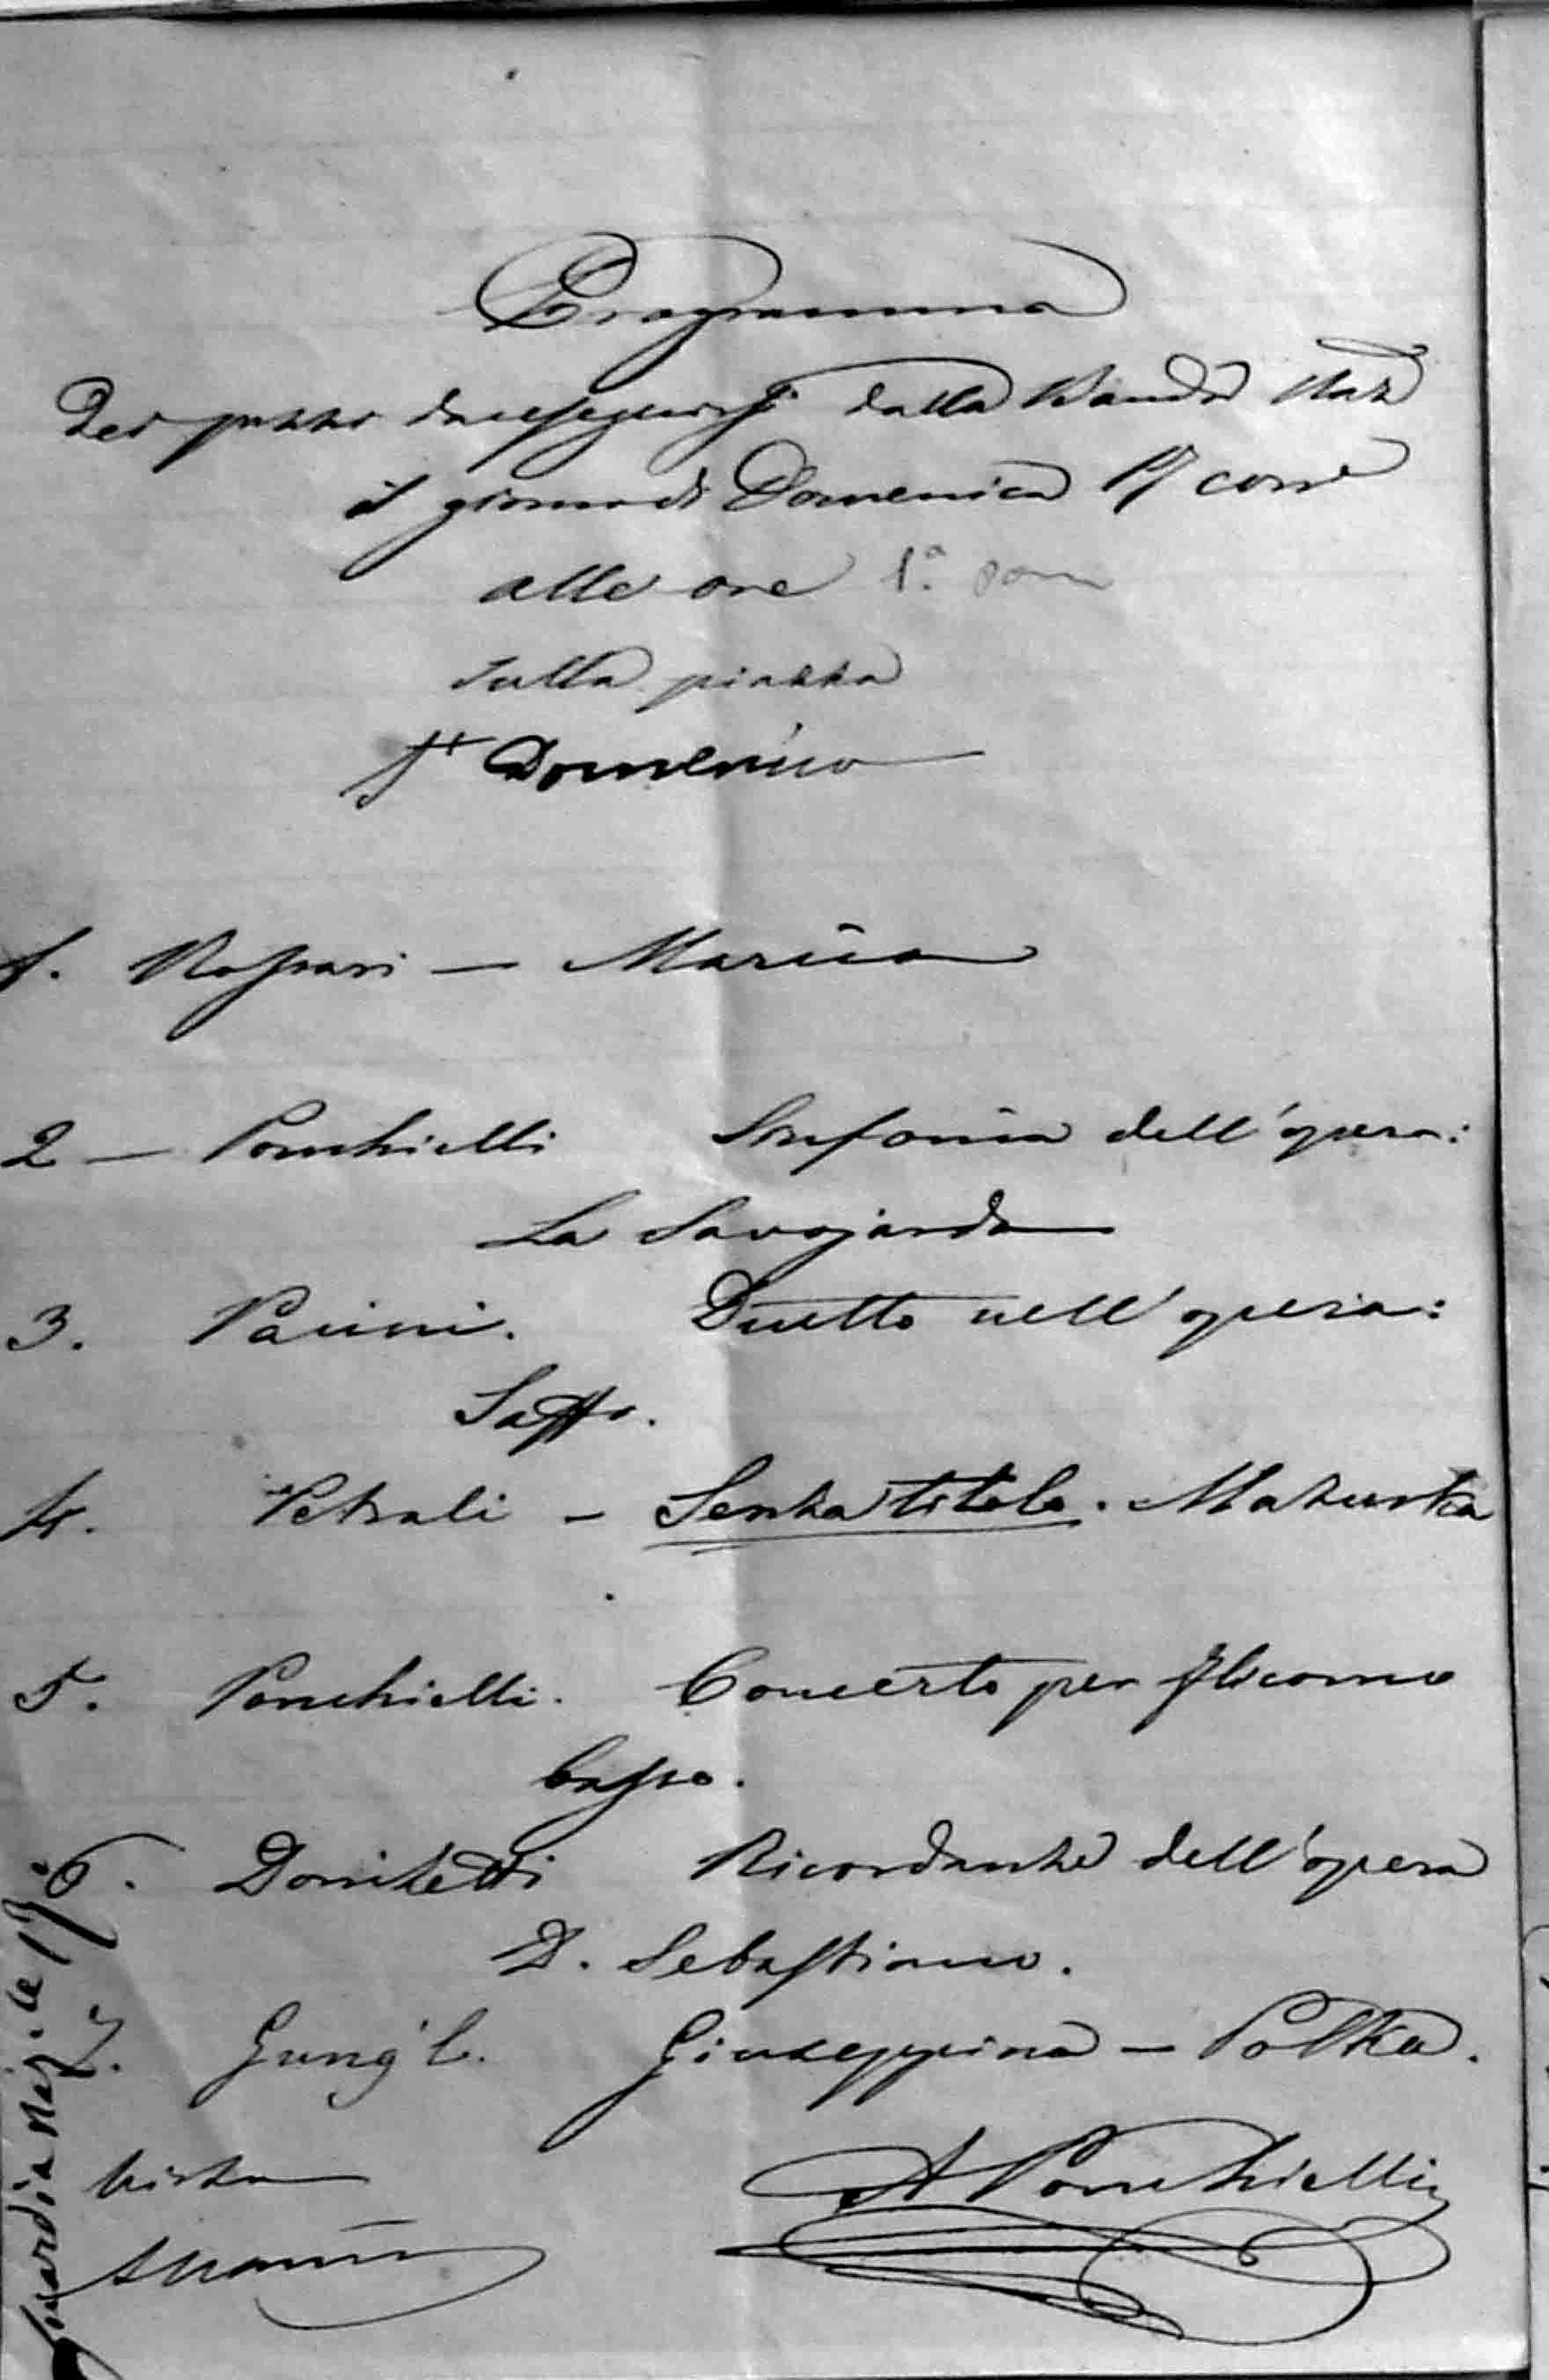 Programma
Dei pezzi da eseguirsi dalla Banda Naz
il giorno di Domenica 17 corr
alle ore 1ª pom
sulla piazza
Sn Domenico
1. Rossari — Marcia
2 — Ponchielli Sinfonia dell'opera:
La Savojarda
3. Pacini. Duetto nell'opera:
Saffo.
4. Petrali - Senza titolo. Mazurka
5. Ponchielli. Concerto per flicorno
basso.
6. Donizetti Ricordanze dell'opera
D. Sebastiano.
7. Gung'l. Giuseppina — Polka.
Visto
A Ponchielli
Guardia Naz.le